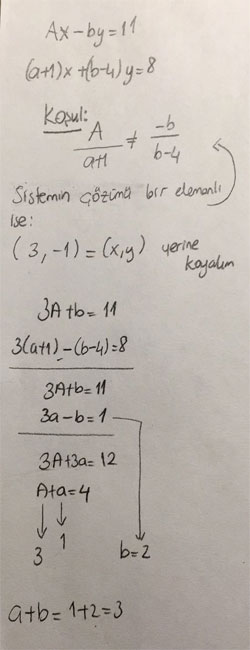 Ax-by=11
(a+1)x+(b-4)y=8
Koşul:
A/a+1 ≠ -b/b-4
Sistemin çözümü bir elemanlı
ise:
(3,-1)=(x,y) yerine
koyalım
3A+b=11
3(a+1)-(b-4)=8
3A+b=11
3a-b=1
3A+3a=12
A+a=4
3 1 b=2
a+b=1+2=3